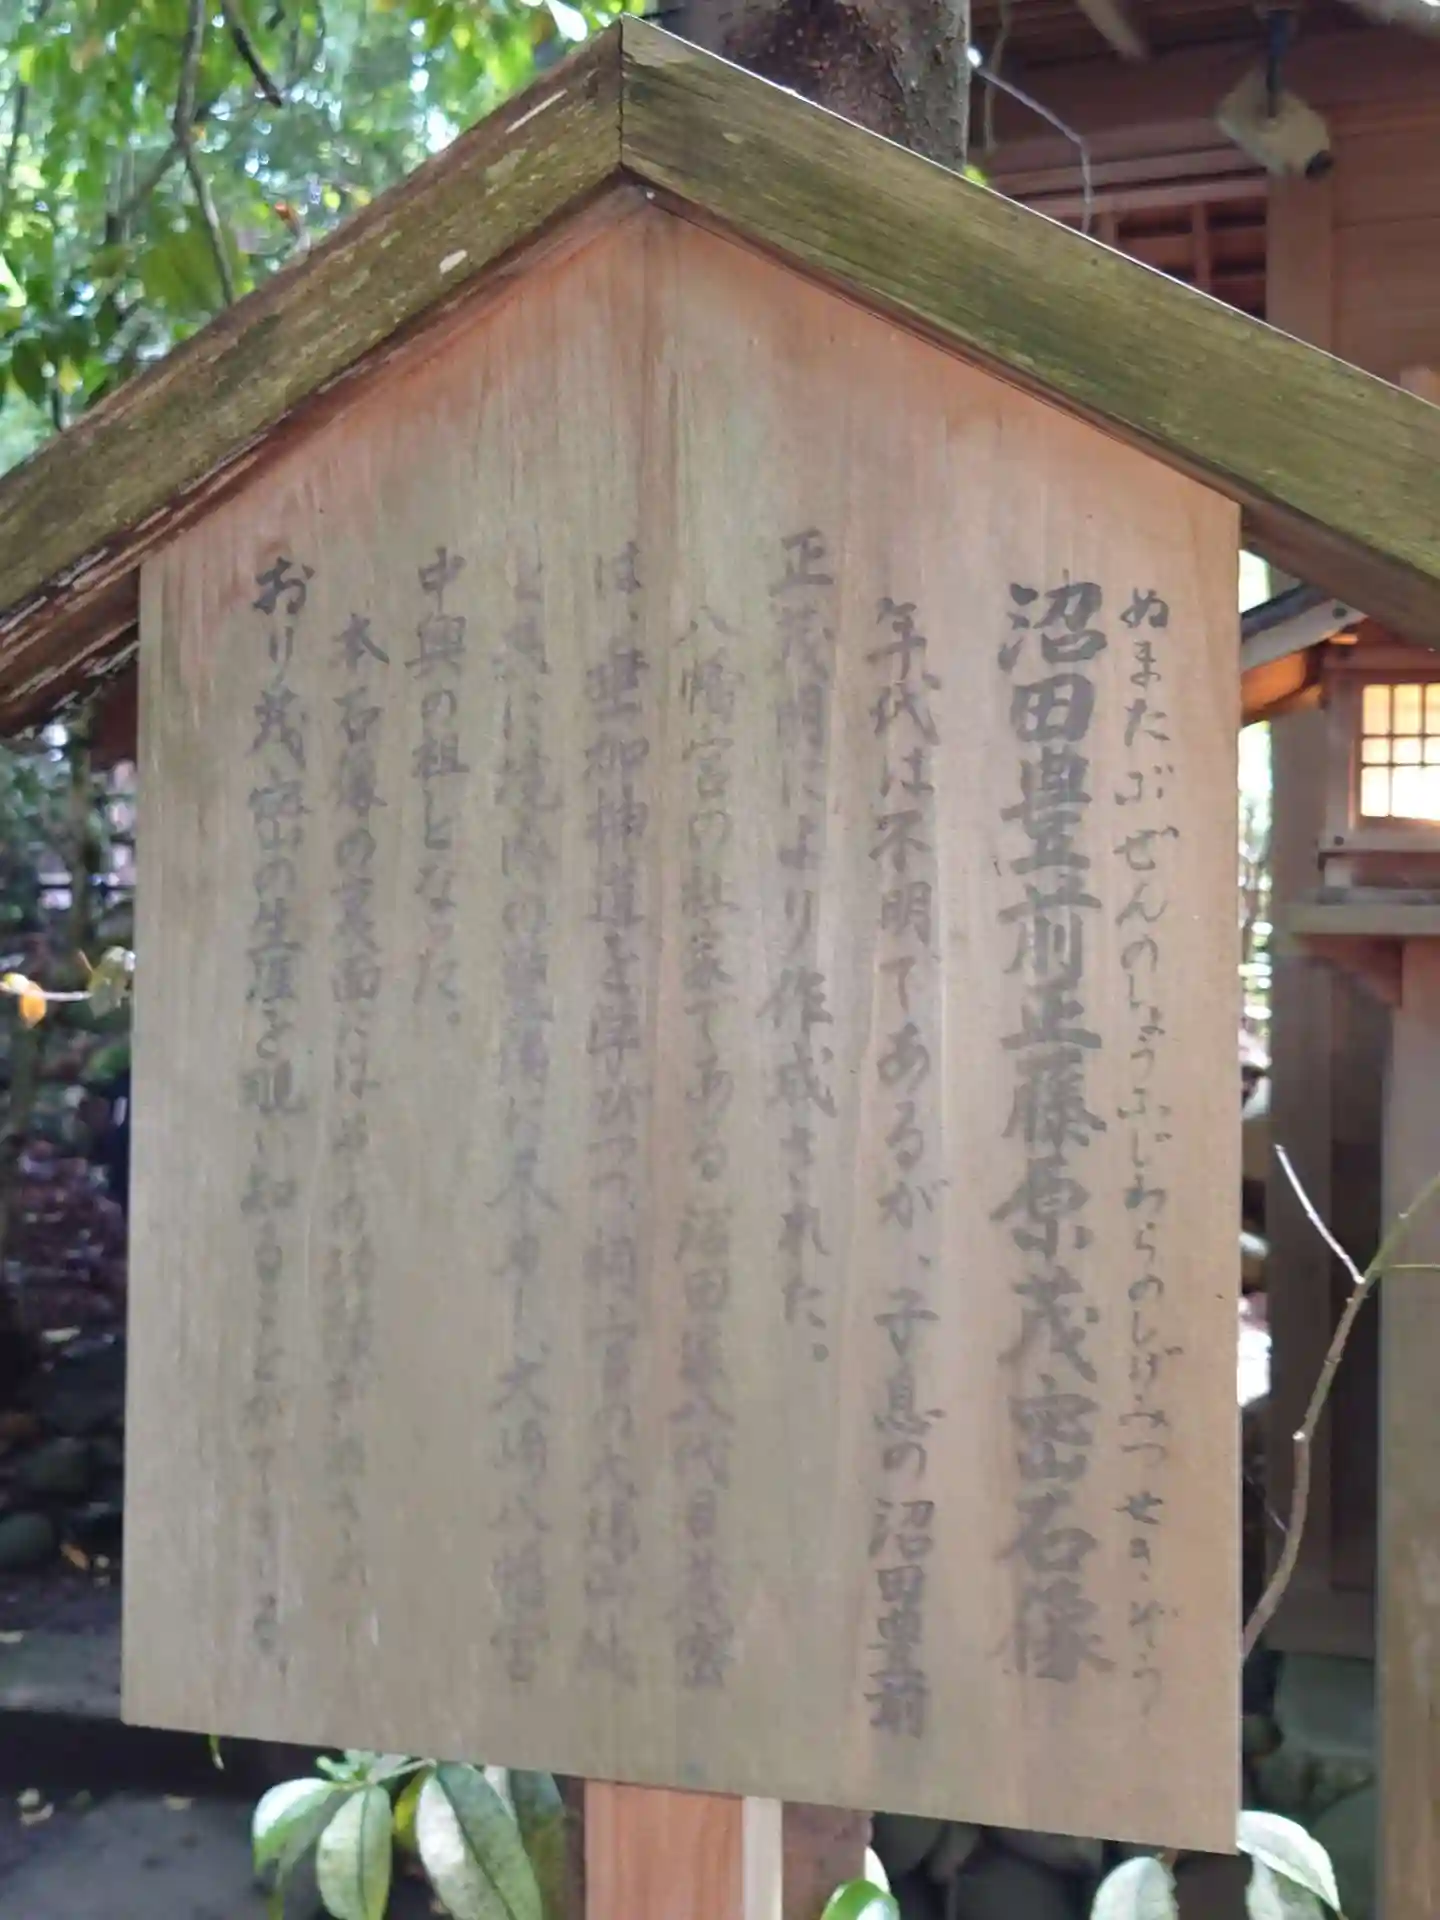 ぬまたぶぜんのしょうふじわらのしげみつせきぞう
沼田豊前正藤原茂密石像
年代は不明であるが、子息の沼田豊前
正茂明により作成された。
八幡宮の社家である沼田家八代目茂密
は、垂加神道を学びつつ、
と共に境内の整備に尽力し、大崎八幡宮
中興の祖となった。
本石像の裏面には
おり茂密の生涯を覗い知ることができる。